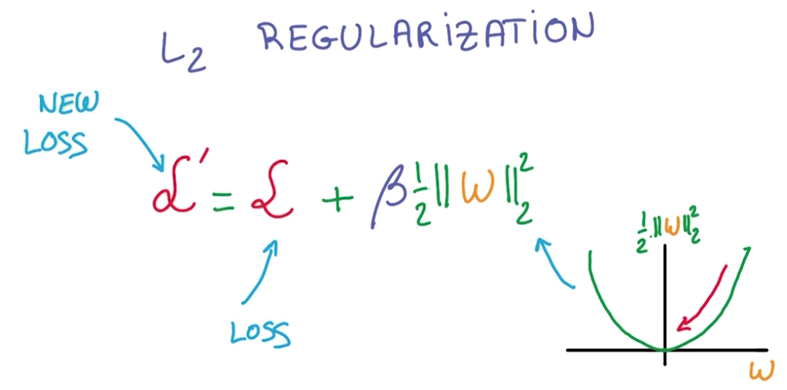 L₂ REGULARIZATION
NEW
LOSS
ℒ′ = ℒ + β ½ ||ω||₂²
LOSS
½ ||ω||₂²
ω